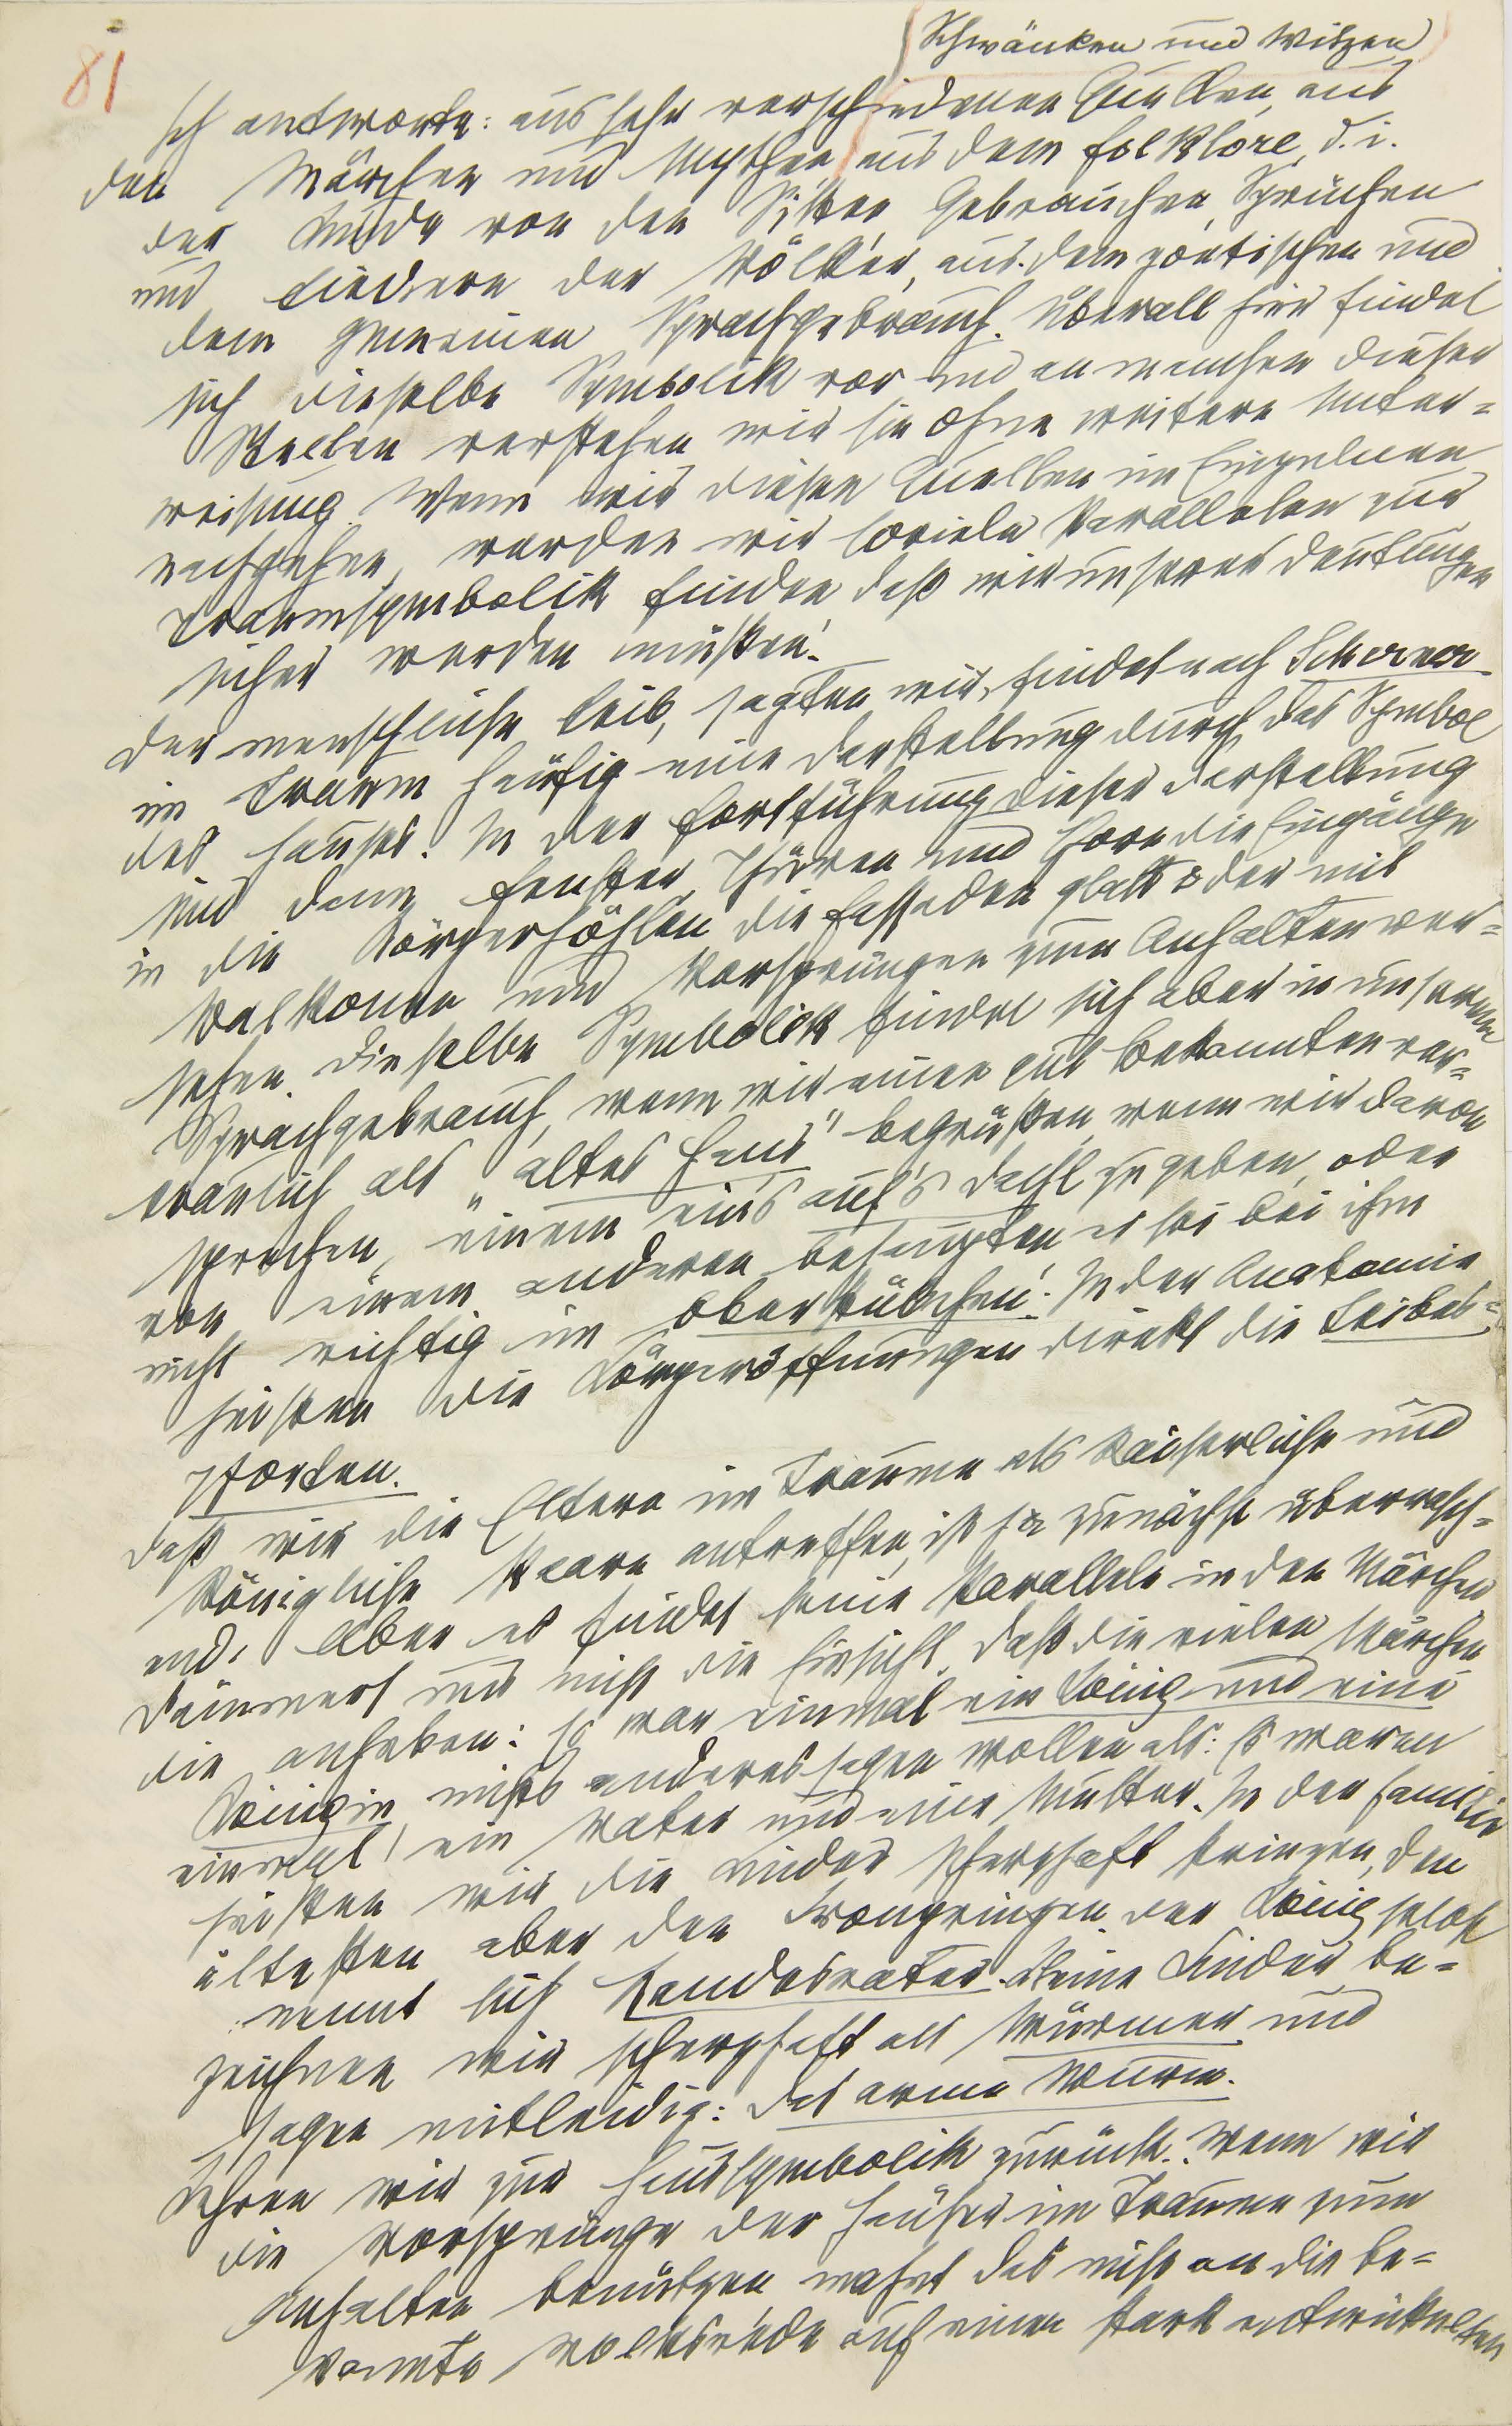 81
(Schwänken und Witzen)
Ich antworte: aus sehr verschiedenen Quellen, aus
den Märchen und Mythen, aus dem Folklore, d. i.
der Kunde von den Sitten, Gebräuchen, Sprüchen
und Liedern der Völker, aus dem poetischen und
dem gemeinen Sprachgebrauch. Überall hier findet
sich dieselbe Symbolik vor und an manchen dieser
Stellen verstehen wir sie ohne weitere Unter=
weisung. Wenn wir diesen Quellen im Einzelnen
nachgehen, werden wir soviele Parallelen zur
Traumsymbolik finden daß wir unserer Deutungen
sicher werden müssen.
Der menschliche Leib, sagten wir, findet nach Scherner
im Traum häufig eine Darstellung durch das Symbol
des Hauses. In der Fortführung dieser Darstellung
sind dann Fenster, Thüren und Tore die Eingänge
in die Körperhöhlen, die Fassaden glatt oder mit
Balkonen und Vorsprüngen zum Anhalten ver=
sehen. Dieselbe Symbolik findet sich aber in unserem
Sprachgebrauch, wenn wir einen gut Bekannten ver=
traulich als „altes Haus" begrüßen, wenn wir davon
sprechen, einem eins auf's Dachl zu geben, oder
von einem anderen behaupten, es sei bei ihm
nicht richtig im Oberstübchen. In der Anatomie
heißen die Körperöffnungen direkt die Leibes=
pforten.
Daß wir die Eltern im Traume als kaiserliche und
königliche Paare antreffen, ist ja zunächst überrasch=
end. Aber es findet seine Parallele in den Märchen
Dämmert uns nicht die Einsicht, daß die vielen Märchen
die anheben: Es war einmal ein König und eine
Königin, nichts anderes sagen wollen als: Es waren
einmal ein Vater und eine Mutter. In der Familie
heißen wir die Kinder scherzhaft Prinzen, den
ältesten aber den Kronprinzen. Der König selbst
nennt sich Landesvater. Kleine Kinder be=
zeichnen wir scherzhaft als Würmer und
sagen mitleidig: das arme Wurm.
Kehren wir zur Haussymbolik zurück. Wenn wir
die Vorsprünge der Häuser im Traume zum
Anhalten benützen, mahnt das nicht an die be=
kannte Volksrede auf einen stark entwickelten